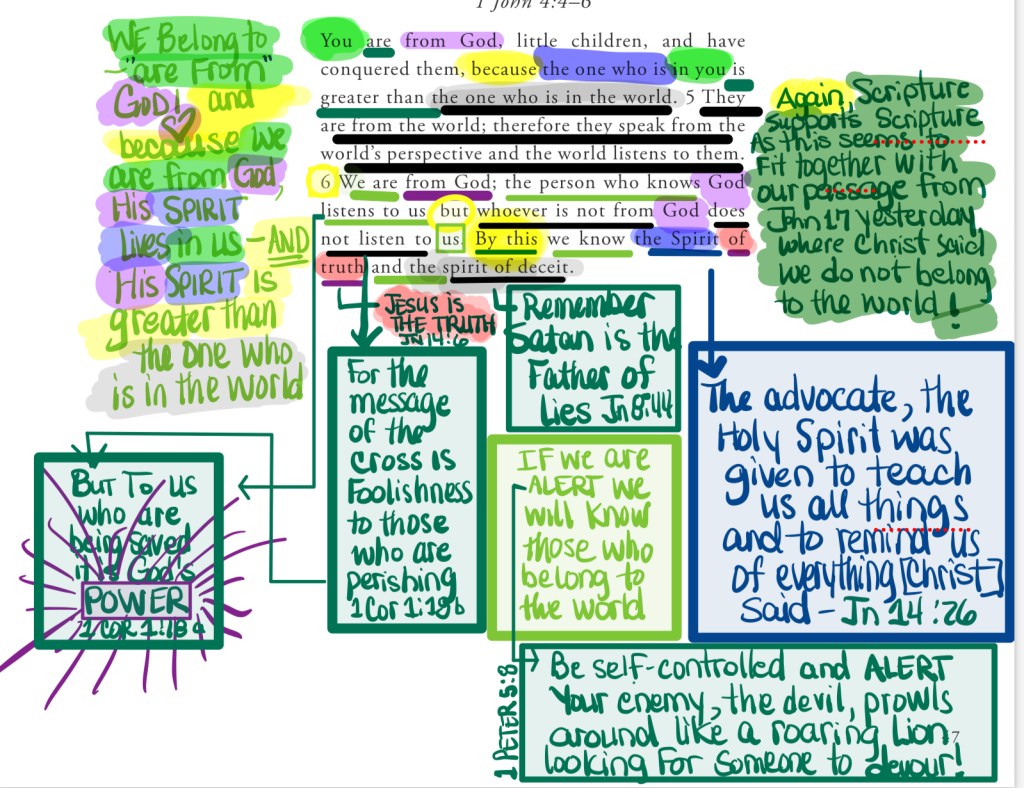 1 John 4:4–6
You are from God, little children, and have
conquered them, because the one who is in you is
greater than the one who is in the world. 5 They
are from the world; therefore they speak from the
world's perspective and the world listens to them.
6 We are from God; the person who knows God
listens to us, but whoever is not from God does
not listen to us. By this we know the Spirit of
truth and the spirit of deceit.
WE Belong to
"are From"
GOD! and
because we
are from God,
His SPIRIT
Lives in us – AND
His SPIRIT is
greater than
the one who
is in the world
Again, Scripture
supports Scripture
As this seems to
Fit together with
our passage from
Jhn 17 yesterday
where Christ said
we do not belong
to the world!
JESUS is
THE TRUTH
JN 14:6
Remember
Satan is the
Father of
Lies Jn 8:44
For the
message
of the
cross is
Foolishness
to those
who are
perishing
1 Cor 1:18b
But To us
who are
being saved
it is God's
POWER
1 COR 1:18a
IF we are
ALERT we
will know
those who
belong to
the world
The advocate, the
Holy Spirit was
given to teach
us all things
and to remind us
of everything [Christ]
Said – Jn 14:26
1 PETER 5:8
Be self-controlled and ALERT
Your enemy, the devil, prowls
around like a roaring Lion
looking For someone to devour!